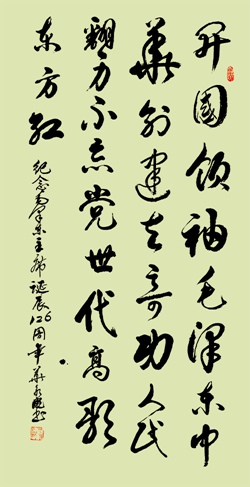 开國领袖毛泽东中
華创建立奇功人民
翻身不忘党世代高歌
东方红
纪念毛泽东主席诞辰126周年華